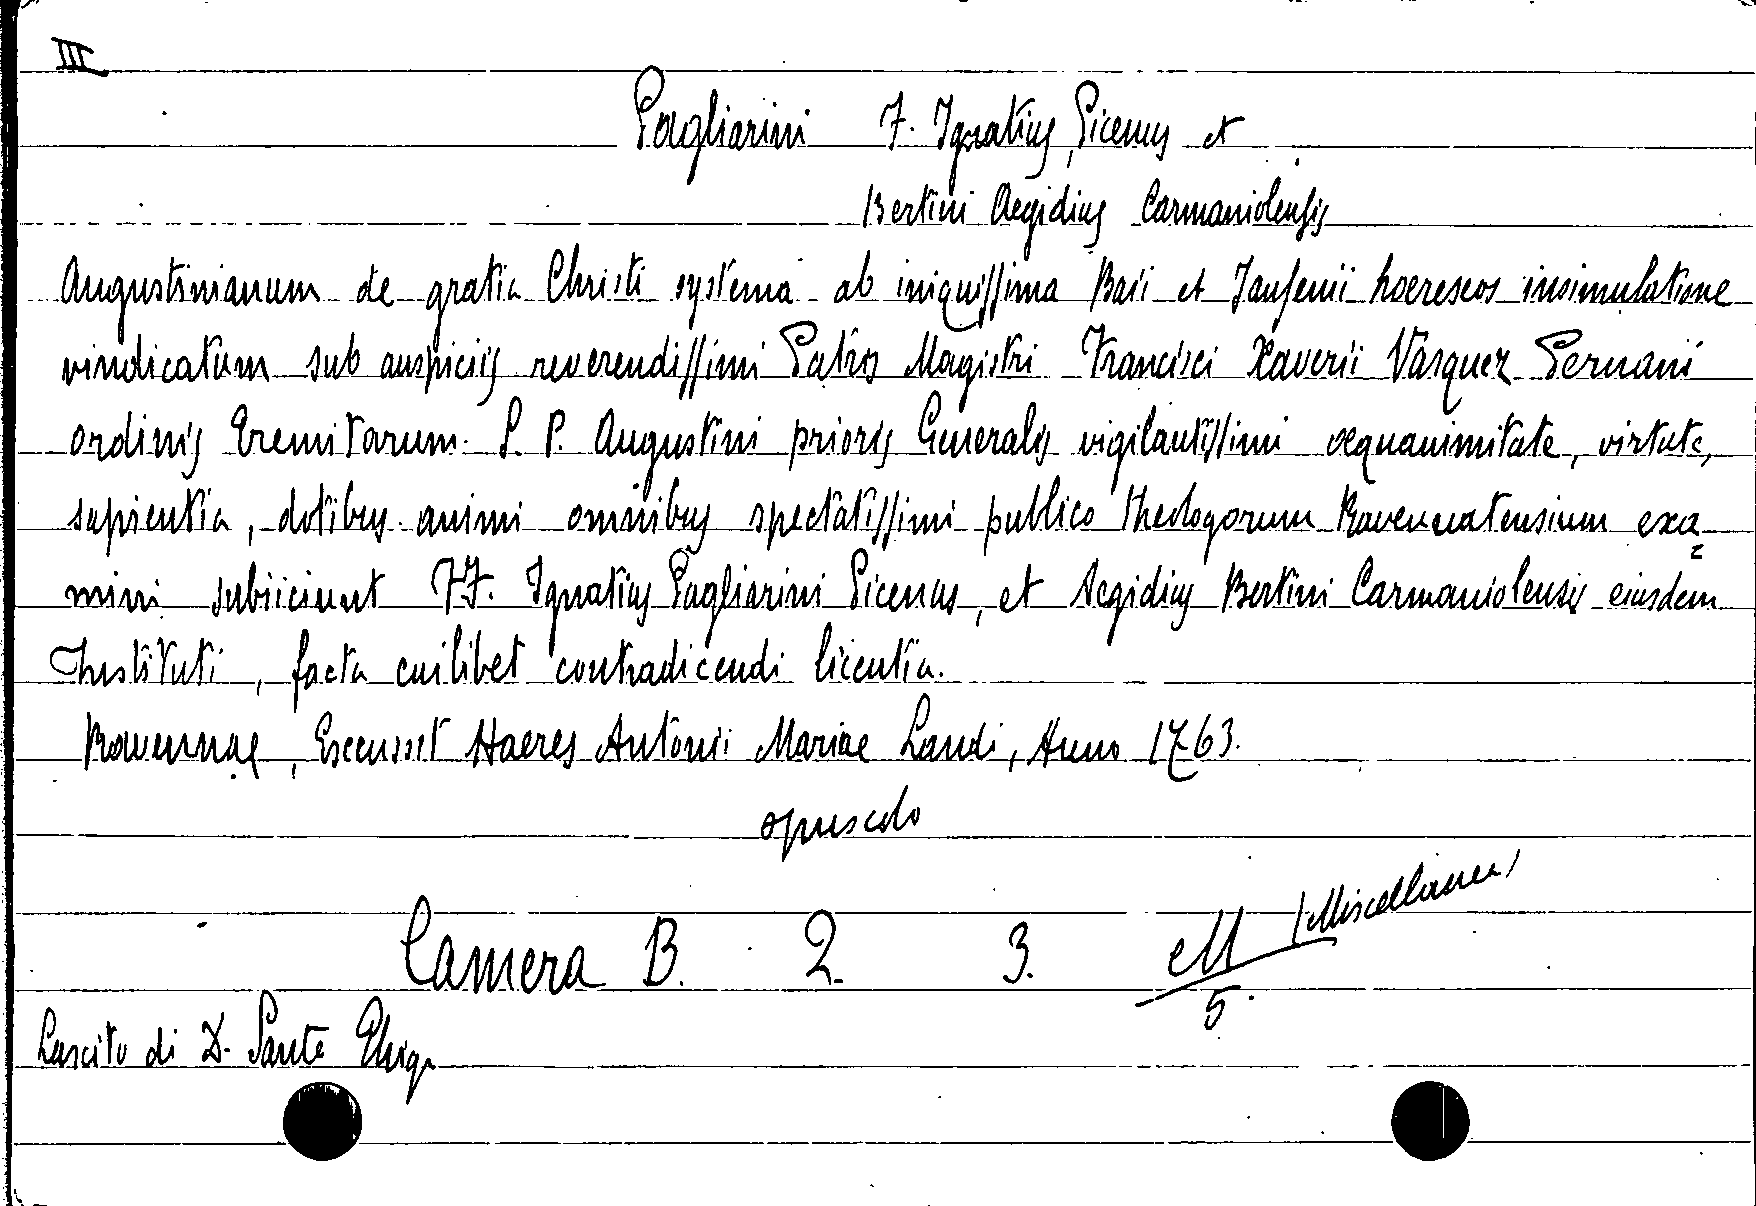 III
Pagliarini F. Ignatius, Picenus et
Bertini Aegidius Carmaniolensis
Augustinianum de gratia Christi systema ab iniquissima Baii et Jansenii hoereseos insimulatione
vindicatum sub auspiciis reverendissimi Patris Magistri Francisci Xaverii Vasquez Peruani
ordinis Eremitarum S. P. Augustini prioris Generalis vigilantissimi aequanimitate, virtute,
sapientia, dotibus animi omnibus spectatissimi publico theologorum Ravennatensium exa=
mini subiiciunt FF. Ignatius Pagliarini Picenus, et Aegidius Bertini Carmaniolensis eiusdem
Instituti, facta cuilibet contradicendi licentia.
Ravennae, Excussit Haeres Antonii Mariae Landi, Anno 1763.
opuscolo
Camera B. 2. 3. M/5. (Miscellanea)
Lascito di D. Sante